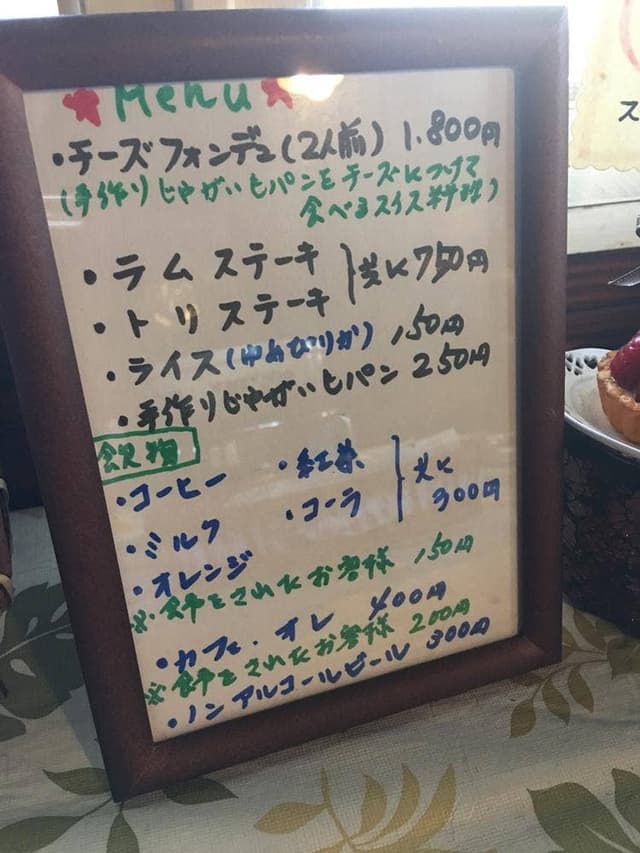 Menu
・チーズフォンデュ(2人前) 1.800円
(手作りじゃがいもパンをチーズにつけて
食べるスイス料理)
・ラムステーキ
・トリステーキ
共に750円
・ライス(ゆめぴりか) 150円
・手作りじゃがいもパン 250円
飲物
・コーヒー ・紅茶
・ミルク ・コーラ
・オレンジ
共に
300円
※食事をされたお客様 150円
・カフェ・オレ 400円
※食事をされたお客様 200円
・ノンアルコールビール 300円
ス